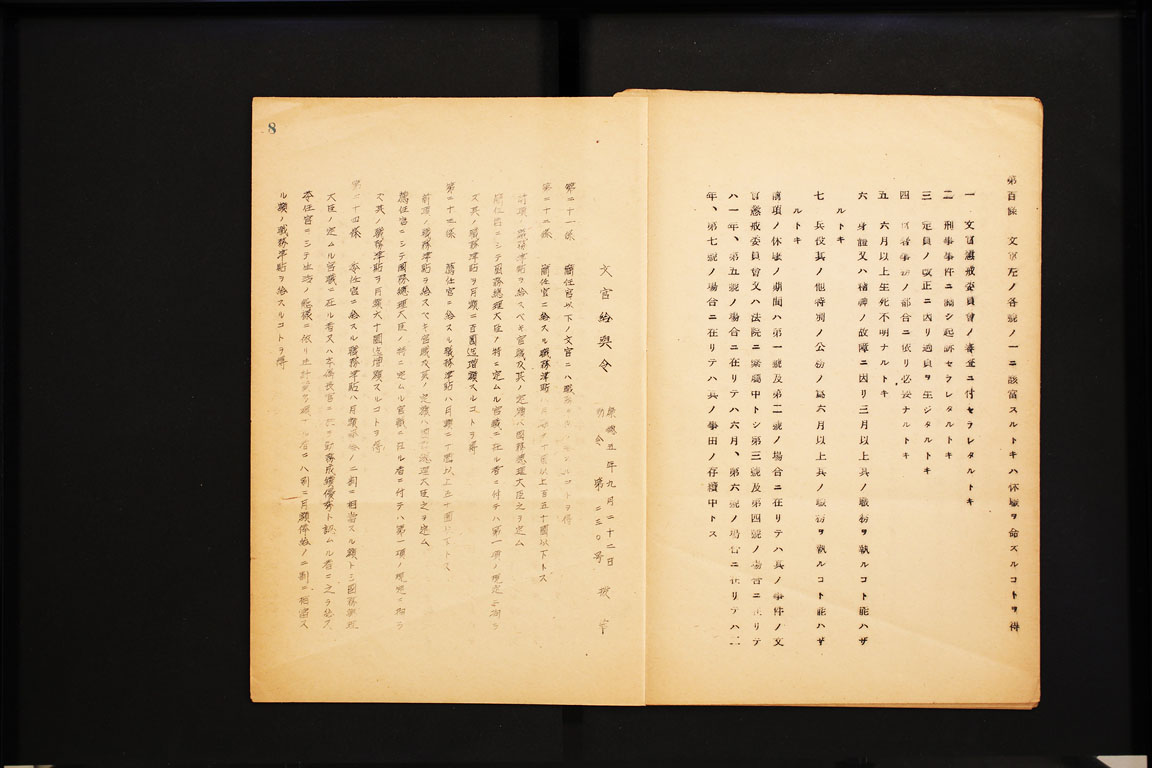 第百條 文官左ノ各號ノ一ニ該當スルトキハ休職ヲ命ズルコトヲ得
一 文官懲戒委員會ノ審査ニ付セラレタルトキ
二 刑事事件ニ關シ起訴セラレタルトキ
三 定員ノ改正ニ因リ過員ヲ生ジタルトキ
四 官署事務ノ都合ニ依リ必要ナルトキ
五 六月以上生死不明ナルトキ
六 身體又ハ精神ノ故障ニ因リ三月以上其ノ職務ヲ執ルコト能ハザ
ルトキ
七 兵役其ノ他特別ノ公務ノ爲六月以上其ノ職務ヲ執ルコト能ハザ
ルトキ
前項ノ休職ノ期間ハ第一號及第二號ノ場合ニ在リテハ其ノ事件ノ文
官懲戒委員會又ハ法院ニ繫屬中トシ第三號及第四號ノ場合ニ在リテ
ハ一年、第五號ノ場合ニ在リテハ六月、第六號ノ場合ニ在リテハ二
年、第七號ノ場合ニ在リテハ其ノ事由ノ存續中トス
文官給與令
康德五年九月二十二日
勅令第二三〇號
第二十一條 簡任官以下ノ文官ニハ職
第二十二條 簡任官ニ給スル職務津貼 以上百五十圓以下トス
前項ノ職務津貼ヲ給スベキ官職及其ノ定額ハ國務總理大臣之ヲ定ム
簡任官ニシテ國務總理大臣ノ特ニ定ムル官職ニ在ル者ニ付テハ第一項ノ規定ニ拘ラ
ズ其ノ職務津貼ヲ月額二百圓迄增額スルコトヲ得
第二十三條 薦任官ニ給スル職務津貼ハ月額二十圓以上五十圓以下トス
前項ノ職務津貼ヲ給スベキ官職及其ノ定額ハ國務總理大臣之ヲ定ム
薦任官ニシテ國務總理大臣ノ特ニ定ムル官職ニ在ル者ニ付テハ第一項ノ規定ニ拘ラ
ズ其ノ職務津貼ヲ月額六十圓迄增額スルコトヲ得
第二十四條 委任官ニ給スル職務津貼ハ月額俸給ノ二割ニ相當スル額トシ國務總理
大臣ノ定ムル官職ニ在ル者又ハ 勤務成績優秀ト認ムル者ニ之ヲ給ス
委任官ニシテ 月額俸給ノ二割ニ相當ス
ル額ノ職務津貼ヲ給スルコトヲ得
8